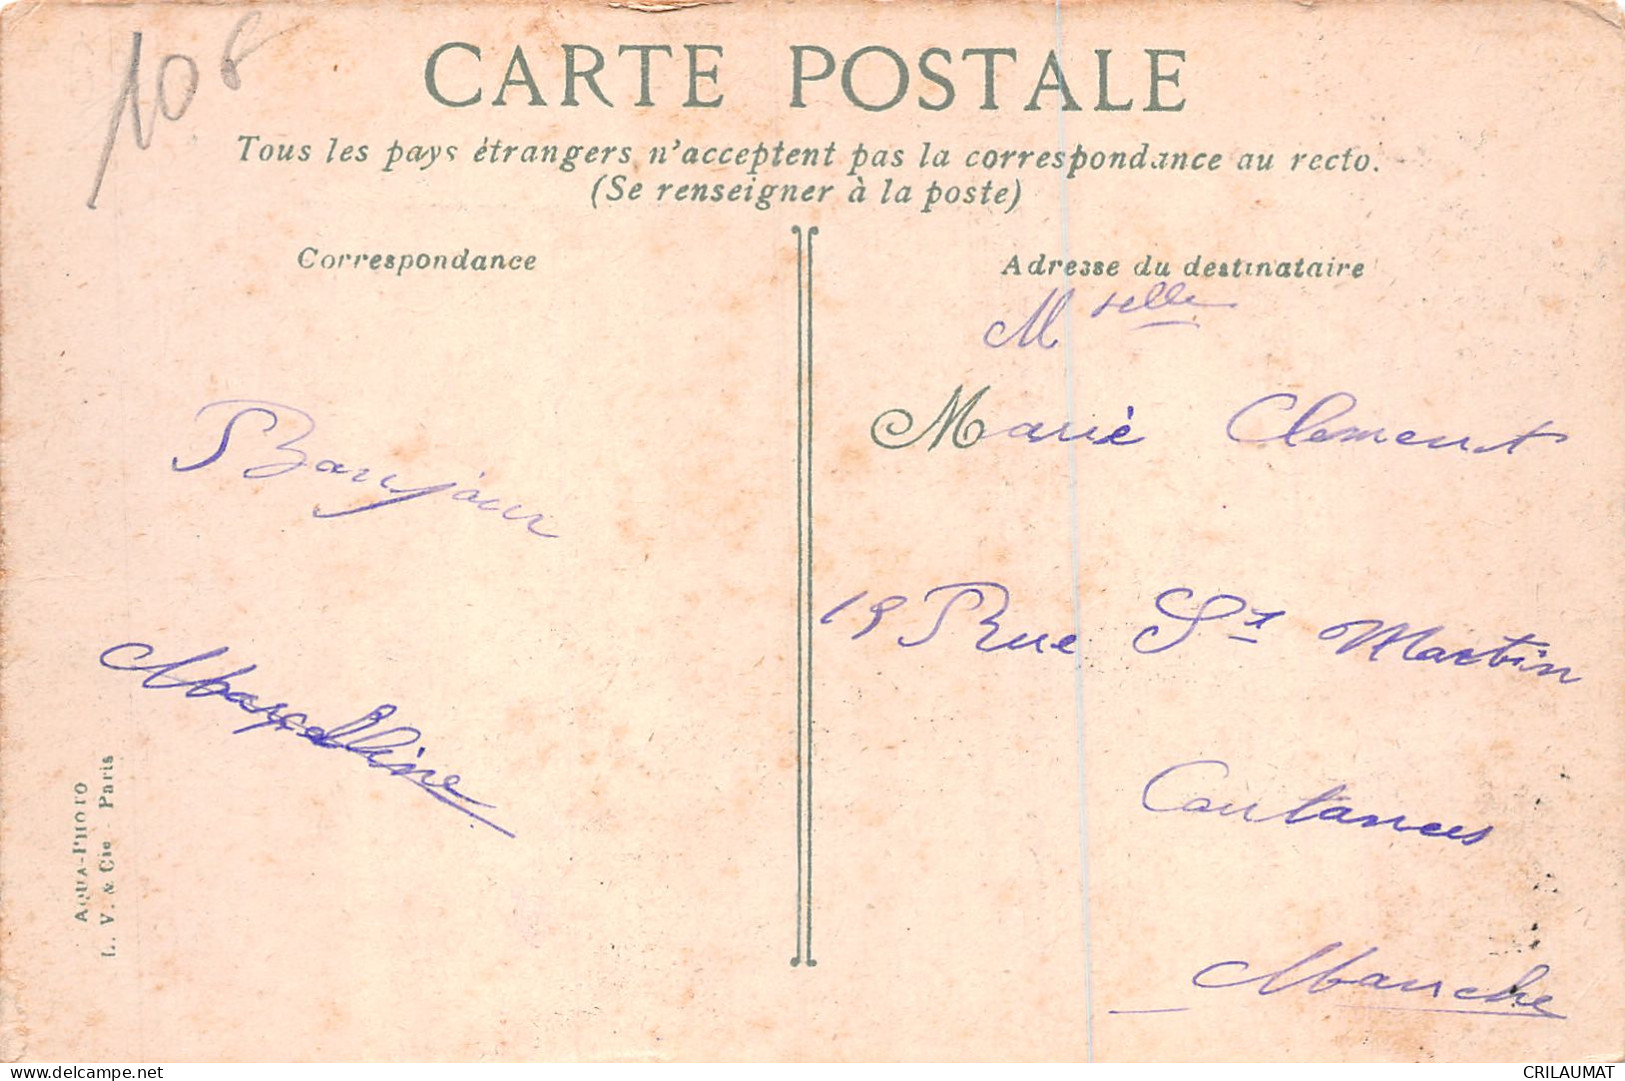 10 f
CARTE POSTALE
Tous les pays étrangers n'acceptent pas la correspondance au recto.
(Se renseigner à la poste)
Correspondance
Bonjour
Marcelline
AQUA-PHOTO
L. V. & Cie - Paris
Adresse du destinataire
Mselle
Marie Clement
19 Rue St Martin
Coutances
Manche
delcampe.net
CRILAUMAT